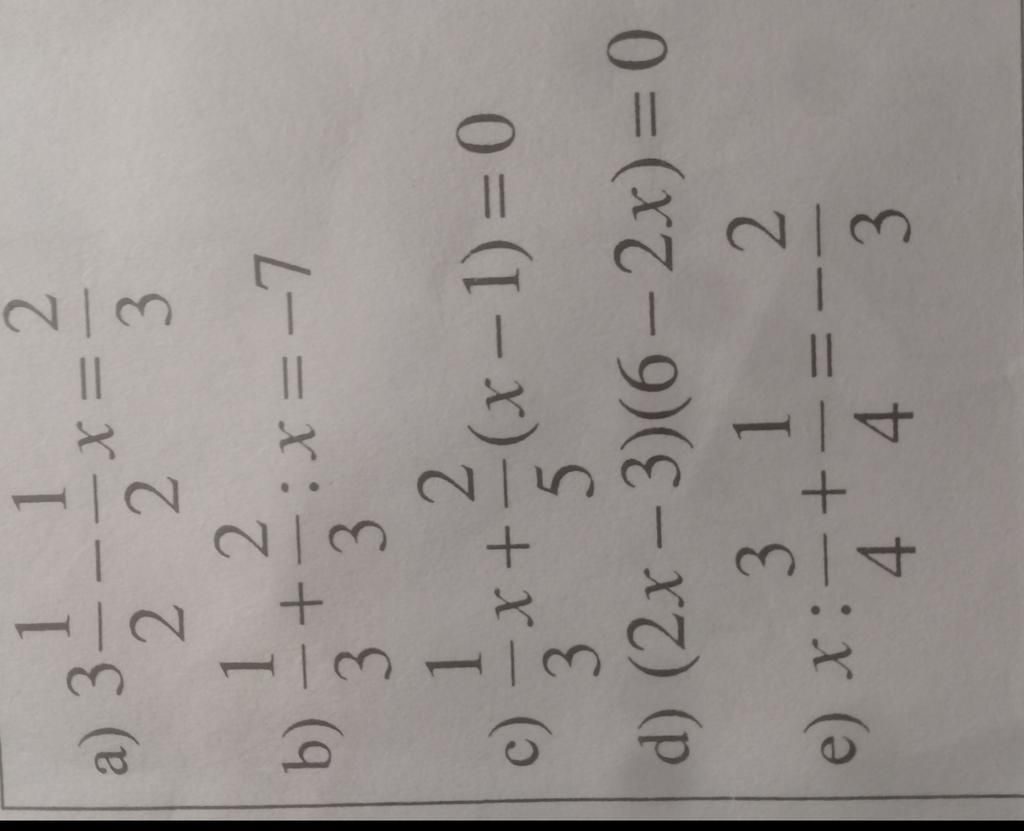 a) 3 1/2 − 1/2 x = 2/3
b) 1/3 + 2/3 : x = −7
c) 1/3 x + 2/5 (x − 1) = 0
d) (2x − 3)(6 − 2x) = 0
e) x : 3/4 + 1/4 = − 2/3